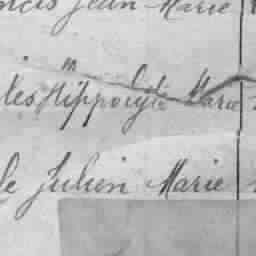 ncis Jean Marie
les Hippolyte Marie
le Julien Marie